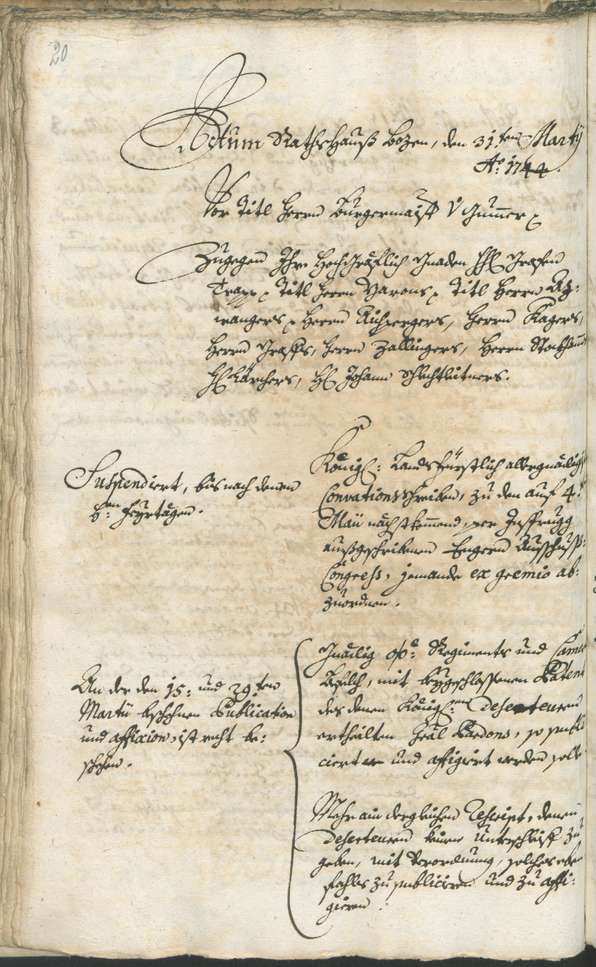 20
Actum Rathshauß Bozen, den 31.ten Martÿ
A.o 1744.
Vor Titl Herrn Burgermaister v Gumer
Zugegen Ihro Hochgräflich Gnaden H: Grafen
Trapp, Titl Herrn Barons, Titl Herrn Az:
wangers, Herrn Kuhepergers, Herrn Kagers,
Herrn Graffs, Herrn Zallingers, Herrn Stockhau
H: Kärchers, H: Johann Schlechtleitners.
Suspendiert, bis nach denen
H: Feÿrtägen.
Königl: Landsfürstlich allergnädig
Convocationsschreiben, zu dem auf 4.
Maii nächstkommend, per Insprugg
außgeschribnen Engern Ausschuß-
Congress, jemande ex gremio ab-
zuordnen.
An der den 15: und 29.ten
Martii beschehnen Publication
und affixion, ist recht be:
schehen.
Gnädig o: Regiments und Camer
Befelch, mit beygeschlossenen Patent
des denen Königl: Deserteuren
ertheilten Gral Pardons, so publi
ciert und affigiert werden solle
Mehr ain dergleichen Rescript, denen
Deserteuren keinen Unterschluff zu
geben, mit Verordnung, solches eben
fahls zu publiciren und zu affi:
gieren.